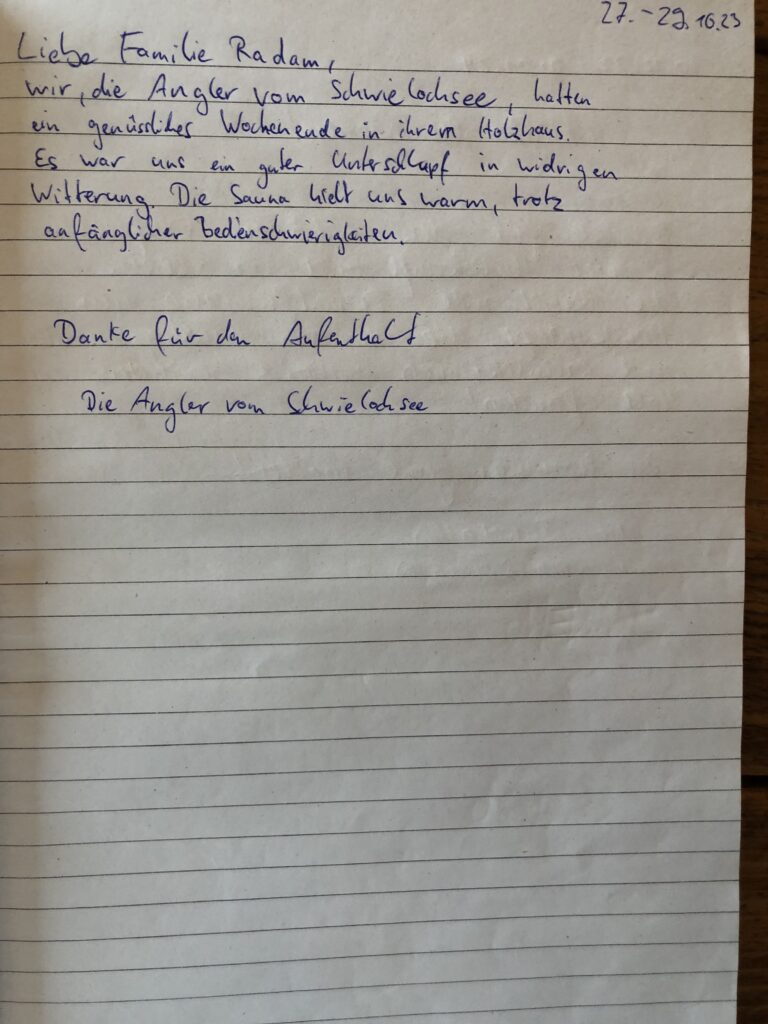 27.-29.10.23
Liebe Familie Radam,
wir, die Angler vom Schwielochsee, hatten
ein genüssliches Wochenende in ihrem Holzhaus.
Es war uns ein guter Unterschlupf in widrigen
Witterung. Die Sauna hielt uns warm, trotz
anfänglicher Bedienschwierigkeiten.
Danke für den Aufenthalt
Die Angler vom Schwielochsee